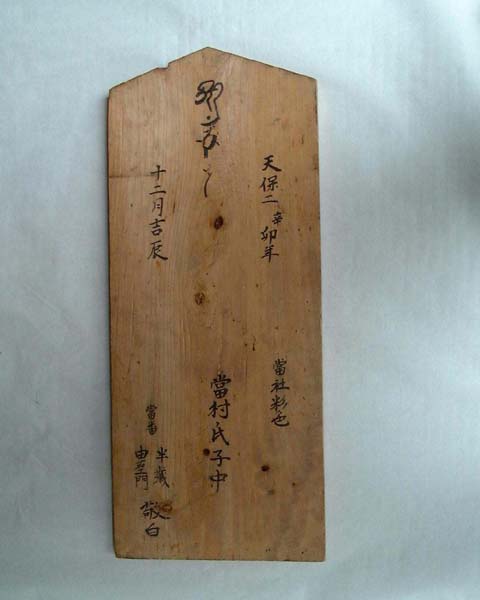 天保二辛卯年
當社彩色
當村氏子中
十二月吉辰
當番
半蔵
由右衛門
敬白